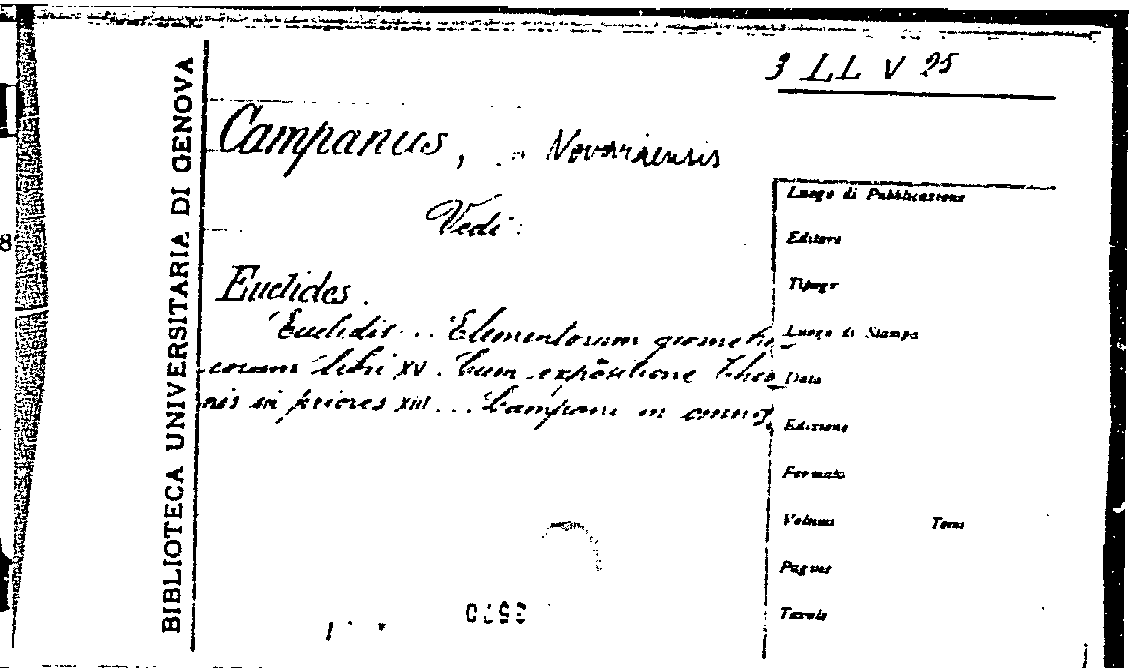 3 LL V 25
BIBLIOTECA UNIVERSITARIA DI GENOVA
Campanus, Novariensis
Vedi:
Euclides.
Euclidis... Elementorum geometri-
corum libri XV. Cum expositione Theo-
nis in priores XIII... Campani in omnes,
Luogo di Pubblicazione
Editore
Tipogr
Luogo di Stampa
Data
Edizione
Formato
Volumi Tomi
Pagine
Tavole
8